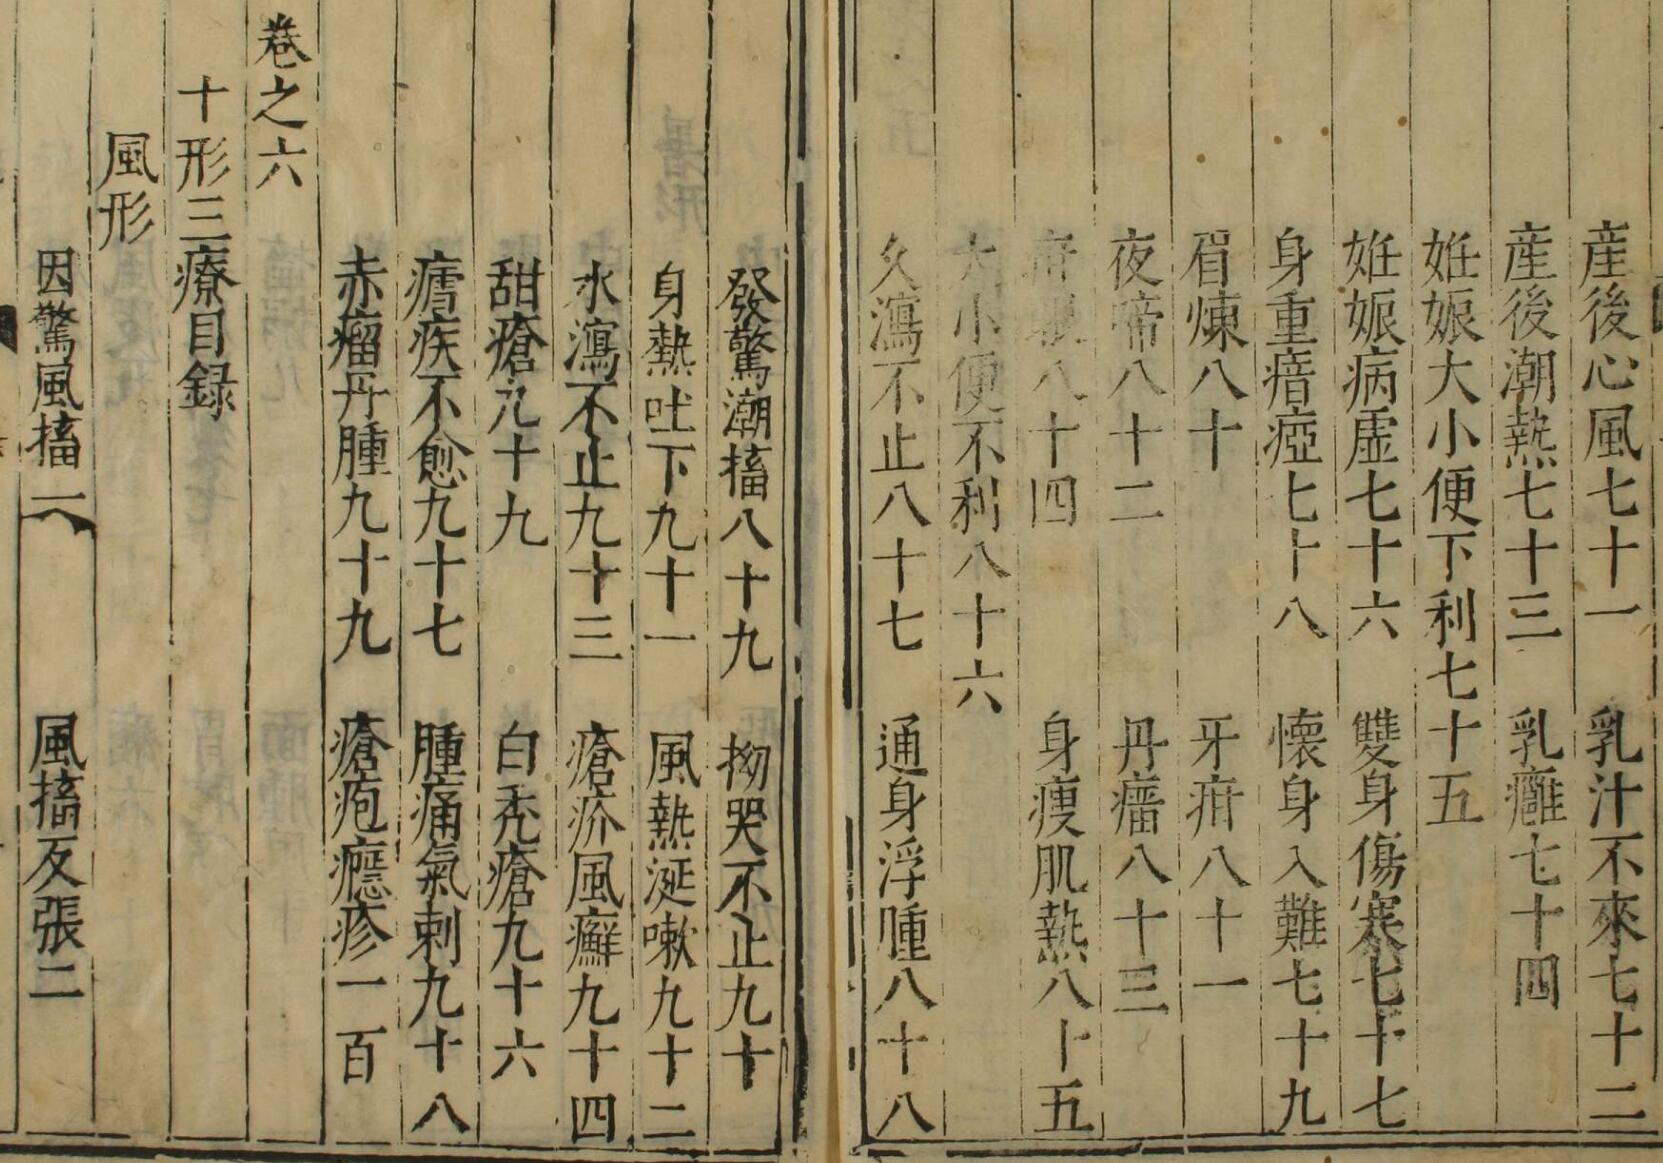 産後心風七十一 乳汁不來七十二
産後潮熱七十三 乳癰七十四
姙娠大小便下利七十五
姙娠病虛七十六 雙身傷寒七十七
身重瘖瘂七十八 懷身入難七十九
眉煉八十 牙疳八十一
夜啼八十二 丹瘤八十三
八十四 身瘦肌熱八十五
大小便不利八十六
久瀉不止八十七 通身浮腫八十八
發驚潮搐八十九 拗哭不止九十
身熱吐下九十一 風熱涎嗽九十二
水瀉不止九十三 瘡疥風癬九十四
甜瘡九十九 白禿瘡九十六
瘧疾不愈九十七 腫痛氣刺九十八
赤瘤丹腫九十九 瘡疱癮疹一百
卷之六
十形三療目録
風形
因驚風搐一 風搐反張二